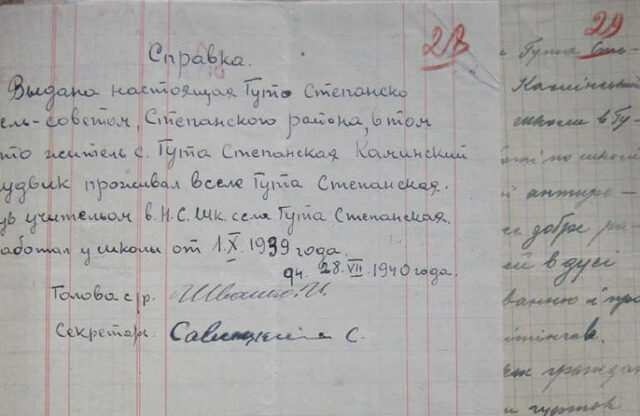 28
Справка.
Выдана настоящая Гуто Степанско
ель-советом, Степанского района, в том
что житель с. Гута Степанская Качинский
удвик проживал в селе Гута Степанская.
учителем в Н.С.Шк. села Гута Степанская.
аботал у школы от 1.X.1939 года.
дн. 28.VII.1940 года.
Голова с/р.
Секретарь. Савицкий С.
29
Гута
школи в Гу-
по школі
й антире-
добре ра-
й в дусі
ванню й про
мітінгов.
граждан
и гурток